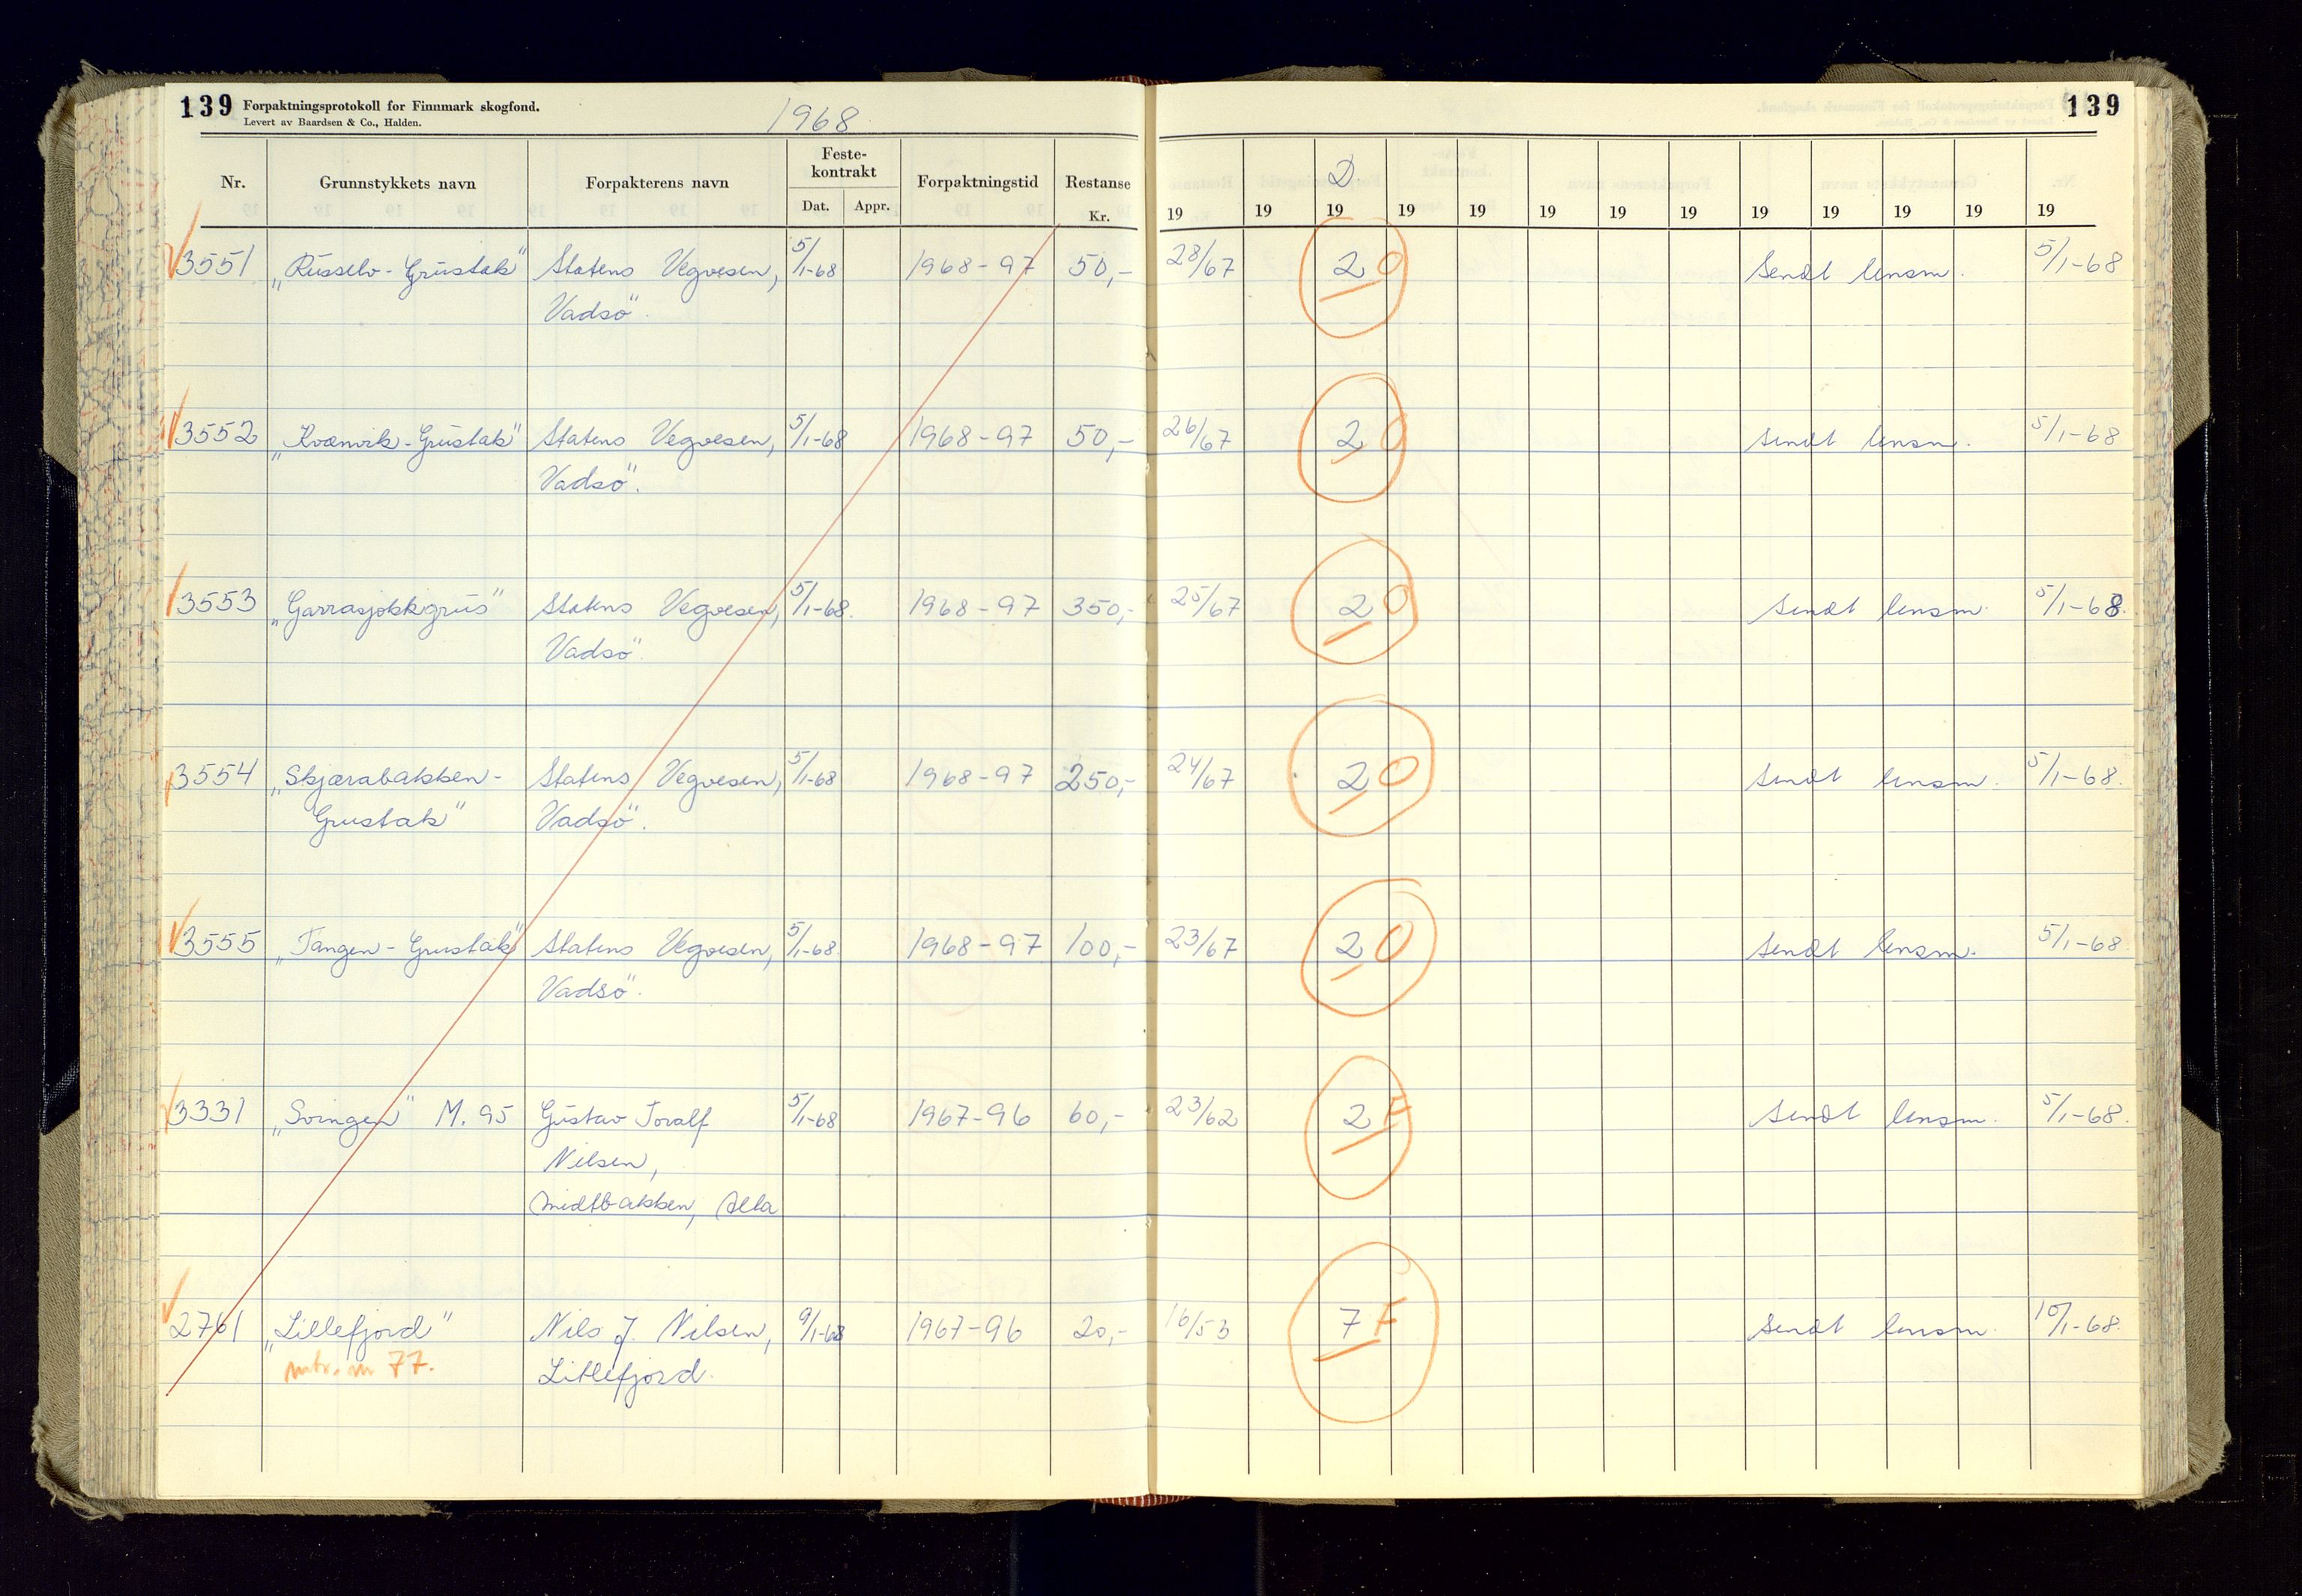 139 Forpaktningsprotokoll for Finnmark skogfond.
Levert av Baardsen & Co., Halden.
1968
139
Nr. Grunnstykkets navn Forpakterens navn Feste-kontrakt Dat. Appr. Forpaktningstid Restanse Kr. D
19 19 19 19 19 19 19 19 19 19 19 19 19
3551 „Russelv-Grustak" Statens Vegvesen, 5/1-68 1968-97 50,- 28/67 2 O Sendt lensm. 5/1-68
Vadsö.
3552 „Kvænvik-Grustak" Statens Vegvesen, 5/1-68 1968-97 50,- 26/67 2 O Sendt lensm. 5/1-68
Vadsö.
3553 „Garrasjokkgrus" Statens Vegvesen, 5/1-68. 1968-97 350,- 25/67 2 O Sendt lensm. 5/1-68.
Vadsö.
3554 „Skjærabakken- Statens Vegvesen, 5/1-68 1968-97 250,- 24/67 2 O Sendt lensm. 5/1-68.
Grustak" Vadsö.
3555 „Tangen-Grustak" Statens Vegvesen, 5/1-68. 1968-97 100,- 23/67 2 O Sendt lensm. 5/1-68
Vadsö.
3331 „Svingen" M. 95 Gustav Toralf 5/1-68 1967-96 60,- 23/62 2 F Sendt lensm. 5/1-68.
Nilsen,
Midtbakken, Alta
2761 „Lillefjord" Nils J. Nilsen, 9/1-68 1967-96 20,- 16/53 7 F Sendt lensm. 10/1-68.
77. Lillefjord.